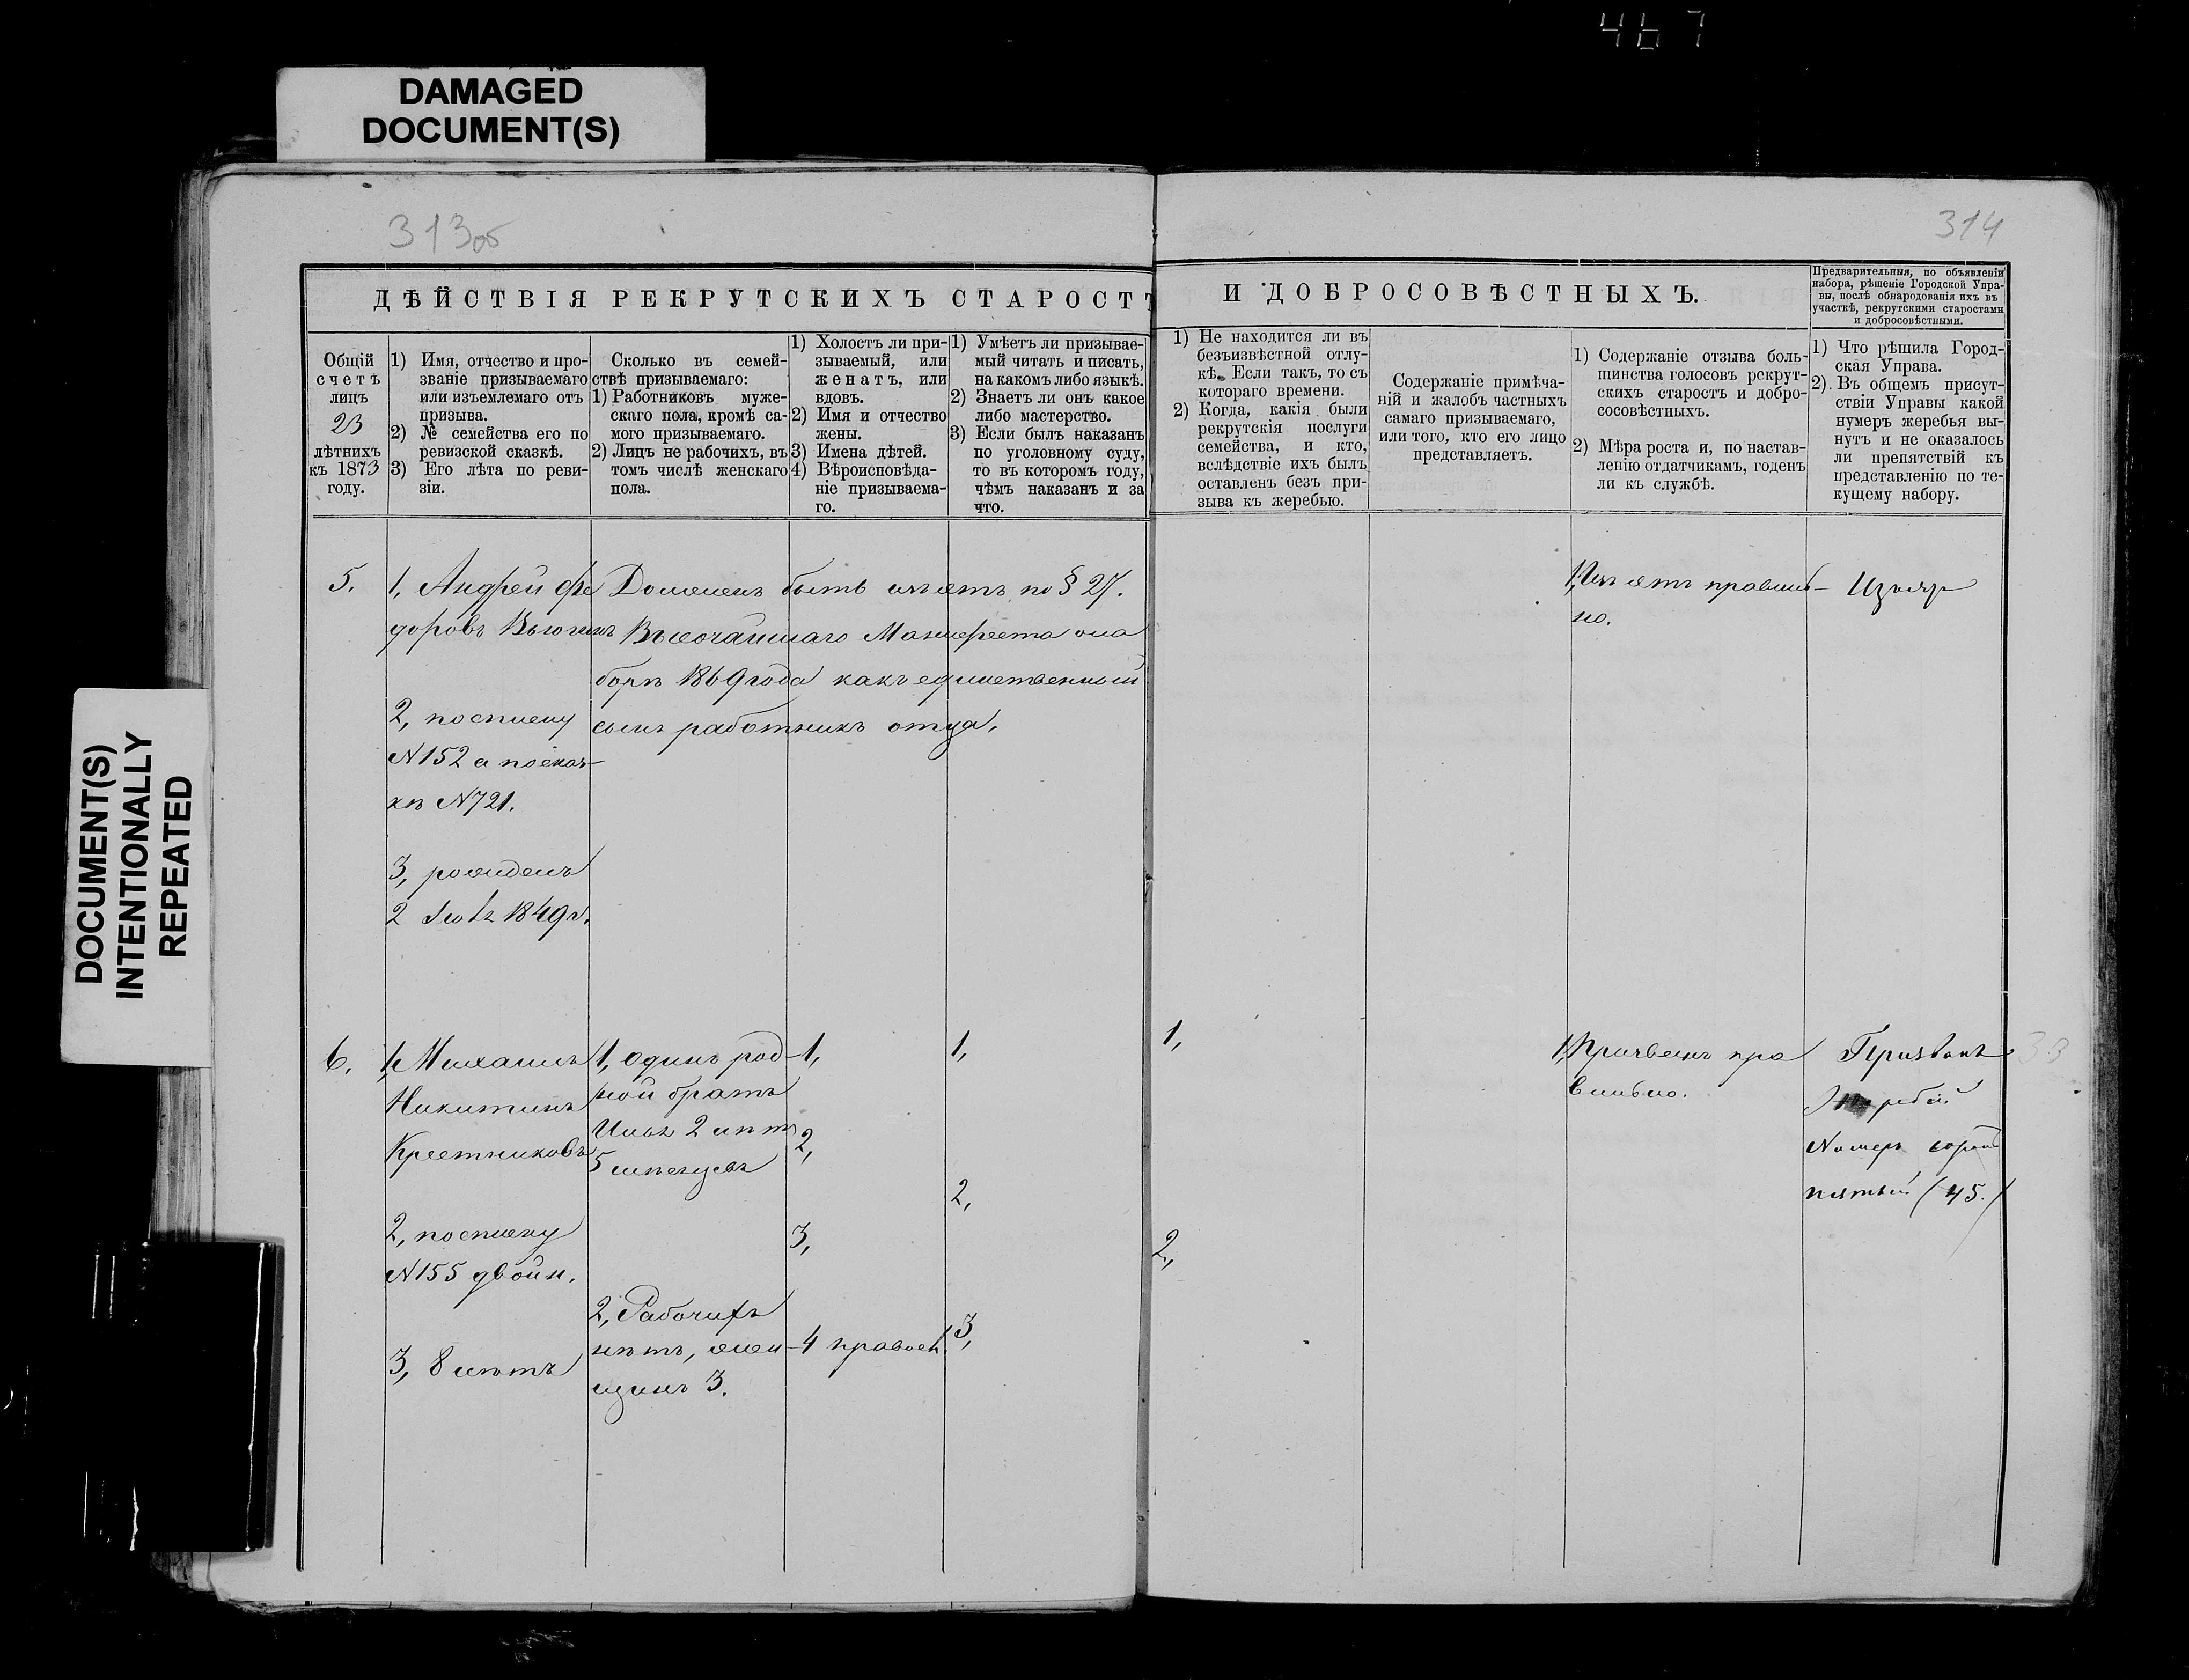 467
DAMAGED
DOCUMENT(S)
DOCUMENT(S)
INTENTIONALLY
REPEATED
313об
314
ДѢЙСТВІЯ РЕКРУТСКИХЪ СТАРОСТЪ
И ДОБРОСОВѢСТНЫХЪ.
Предварительныя, по объявленіи
набора, рѣшеніе Городской Упра-
вы, послѣ обнародованія ихъ въ
участкѣ, рекрутскими старостами
и добросовѣстными.
Общій
счетъ
лицъ
23
лѣтнихъ
къ 1873
году.
1) Имя, отчество и про-
званіе призываемаго
или изъемлемаго отъ
призыва.
2) № семейства его по
ревизской сказкѣ.
3) Его лѣта по реви-
зіи.
Сколько въ семей-
ствѣ призываемаго:
1) Работниковъ муже-
скаго пола, кромѣ са-
мого призываемаго.
2) Лицъ не рабочихъ, въ
томъ числѣ женскаго
пола.
1) Холостъ ли при-
зываемый, или
женатъ, или
вдовъ.
2) Имя и отчество
жены.
3) Имена дѣтей.
4) Вѣроисповѣда-
ніе призываема-
го.
1) Умѣетъ ли призывае-
мый читать и писать,
на какомъ либо языкѣ.
2) Знаетъ ли онъ какое
либо мастерство.
3) Если былъ наказанъ
по уголовному суду,
то въ которомъ году,
чѣмъ наказанъ и за
что.
1) Не находится ли въ
безъизвѣстной отлу-
кѣ. Если такъ, то съ
котораго времени.
2) Когда, какія были
рекрутскія послуги
семейства, и кто,
вслѣдствіе ихъ былъ
оставленъ безъ при-
зыва къ жеребью.
Содержаніе примѣча-
ній и жалобъ частныхъ
самаго призываемаго,
или того, кто его лицо
представляетъ.
1) Содержаніе отзыва боль-
шинства голосовъ рекрут-
скихъ старостъ и добро-
сосовѣстныхъ.
2) Мѣра роста и, по настав-
ленію отдатчикамъ, годенъ
ли къ службѣ.
1) Что рѣшила Город-
ская Управа.
2). Въ общемъ присут-
ствіи Управы какой
нумеръ жеребья вы-
нутъ и не оказалось
ли препятствій къ
представленію по те-
кущему набору.
5.
1, Андрей Фе
доровъ Вьюгинъ
2, по списку
№152 а по сказ-
кѣ №721.
3, рожденъ
2 1849 г.
Долженъ быть изъятъ по § 27.
Высочайшаго Манифеста о на
борѣ 1869 года какъ единственный
сынъ работникъ отца.
1, Изъятъ правиль-
но.
Изъятъ
6.
1, Михаилъ
Никитинъ
Крестниковъ
2, по списку
№155 двойн.
3, 8 лѣтъ
1, одинъ род-
ной братъ
Илья 2 лѣтъ
5 мѣсяцевъ
2, Рабочихъ
нѣтъ, жен-
щинъ 3.
1,
2,
3,
4 правосл.
1,
2,
3,
1,
2,
1, Призванъ пра
вильно.
Призванъ
Жеребій
Номеръ сорокъ
пятый (45.)
33